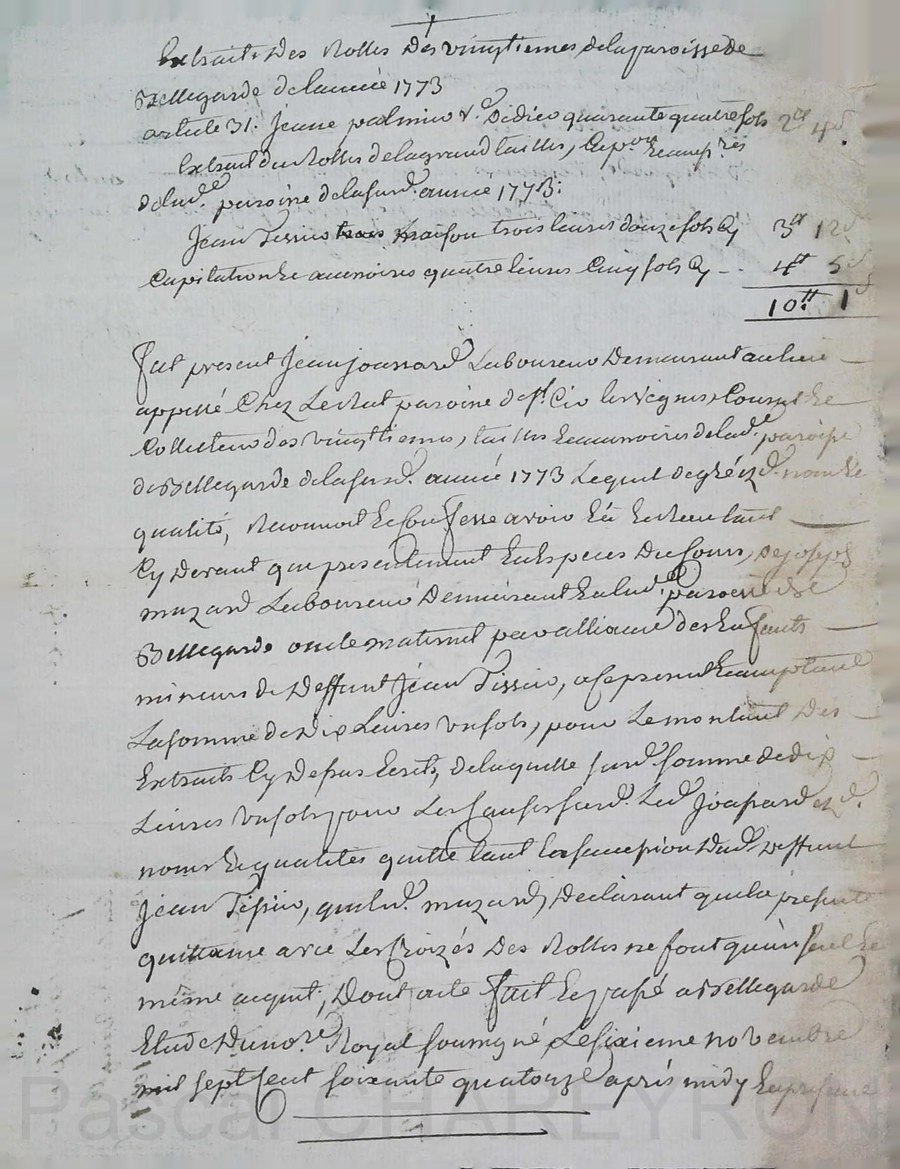 Extraits Des Rolles Des vingtiemes de la paroisse de
Bellegarde de lannée 1773
article 31. Jeane palmier v.e Didier quarante quatre sols 2ll 4s
Extrait du Rolles de la grand tailles, Cap.on
de lad.e paroisse de la susd. année 1773:
Jean Tissier maison trois livres douze sols Cy 3ll 12s
Capitation Et accessoires quatre livres Cinq sols Cy -- 4ll 5s
10ll 1
fut present Jean joassard Laboureur Demeurant au lieu
appellé Chez paroisse de st. Cir les vignes, Consul Et
Collecteur des vingtiemes, tailles Et accessoires de lad.e paroisse
de Bellegarde de la susd. année 1773 Lequel de gré ezd. nom Et
qualité, Reconnoit Et Confesse avoir Eü Et Receu tant
Cy Devant que presentement En Especes Du Cours, de joseph
mazard Laboureur Demeurant En lad.e paroisse de
Bellegarde oncle maternel par alliance des Enfants
mineurs de Deffunt Jean Tissier, a Ce present Et acceptant
La somme de Dix Livres un sols, pour Le montant Des
Extraits Cy Dessus Ecrits, de laquelle susd. somme de dix
Livres un sols pour Les Causes susd. Led. Joassard ezd.
noms Et qualités quitte tant La succession Dud. Deffunt
Jean Tissier, que led. mazard, Declarant que la presente
quittance avec Les Croizés Des Rolles ne font qu'un seul Et
même acquit, Dont acte fait Et passé a Bellegarde
Etude Du no.re Royal soussigné, Le sixieme novembre
mil sept Cent soixante quatorze après midy En presence
Pascal CHAREYRON